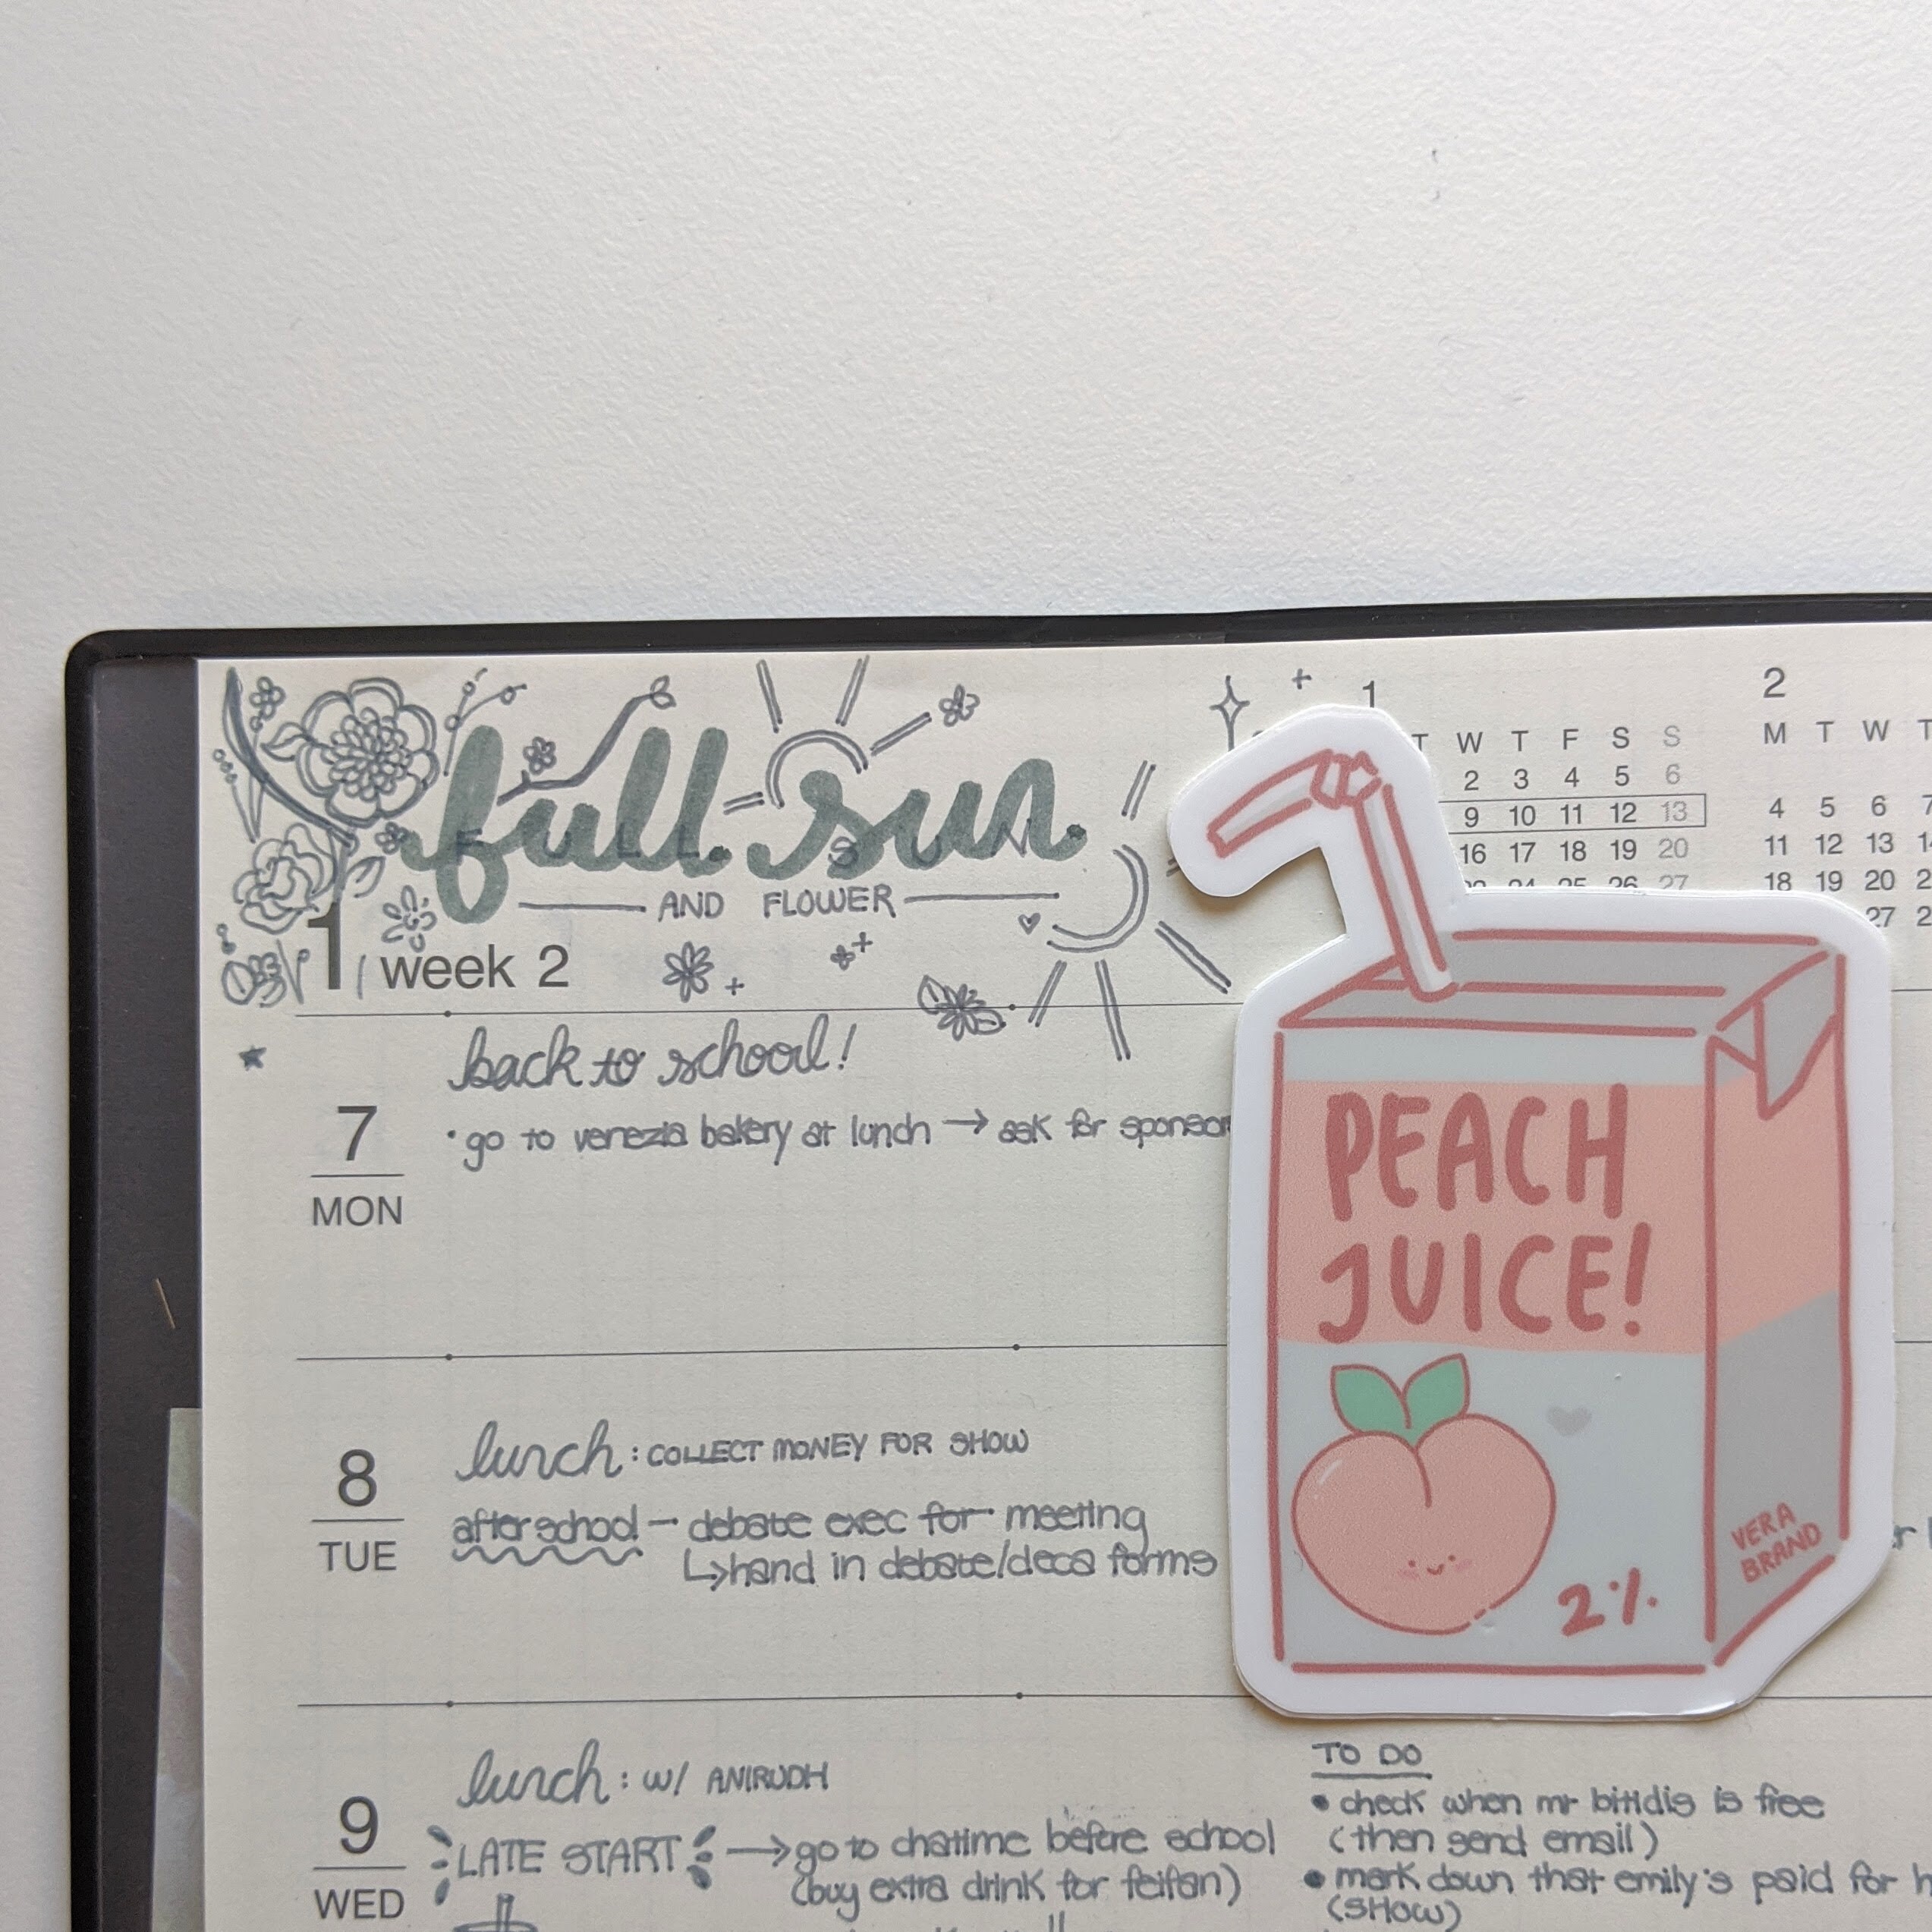 full sun.
FULL SUN
AND FLOWER
1 week 2
1
T W T F S S
2 3 4 5 6
9 10 11 12 13
16 17 18 19 20
24 25 26 27
2
M T W T
4 5 6 7
11 12 13
18 19 20
27
back to school!
7
MON
• go to venezia bakery at lunch → ask for sponsor
8
TUE
lunch: COLLECT MONEY FOR SHOW
after school — debate exec for meeting
↳hand in debate/deca forms
PEACH
JUICE!
2%
VERA
BRAND
9
WED
lunch: w/ ANIRUDH
LATE START → go to chatime before school
(buy extra drink for feifan)
TO DO
• check when mr bitidis is free
(then send email)
• mark down that emily's paid for
(SHOW)